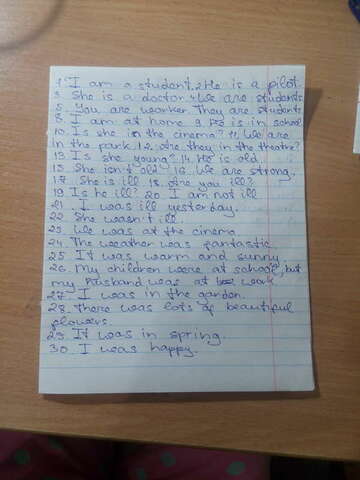 1. I am a student. 2. He is a pilot.
3. She is a doctor. 4. We are students
5. You are worker. They are students
8. I am at home. 9. He is in school
10. Is she in the cinema? 11. We are
in the park 12. Are they in the theatre?
13. Is she young? 14. He is old.
15. She isn't old. 16. We are strong.
17. She is ill 18. Are you ill?
19. Is he ill? 20. I am not ill
21. I was ill yesterday.
22. She wasn't ill.
23. We was at the cinema
24. The weather was fantastic
25. It was warm and sunny
26. My children were at school, but
my husband was at work
27. I was in the garden.
28. There was lots of beautiful
flowers.
29. It was in spring.
30. I was happy.